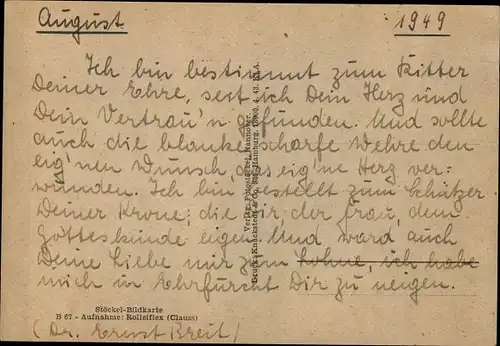 August 1949
Ich bin bestimmt zum Ritter
Deiner Ehre, seit ich Dein Herz und
Dein Vertrau'n gefunden. Und sollte
auch die blanke scharfe Wehre den
eig'nen Wunsch, das eig'ne Herz ver-
wunden. Ich bin bestellt zum Schützer
Deiner Krone; die wir der Frau, dem
Gotteskinde eigen. Und ward auch
Deine Liebe mir zum Lohne, ich habe
mich in Ehrfurcht Dir zu neigen.
Stöckel-Bildkarte
B 67 - Aufnahme: Rolleiflex (Clauss)
(Dr. Ernst Breit)
Verlag: Hannover.
Druck: Knackstedt & Co. Hamburg.